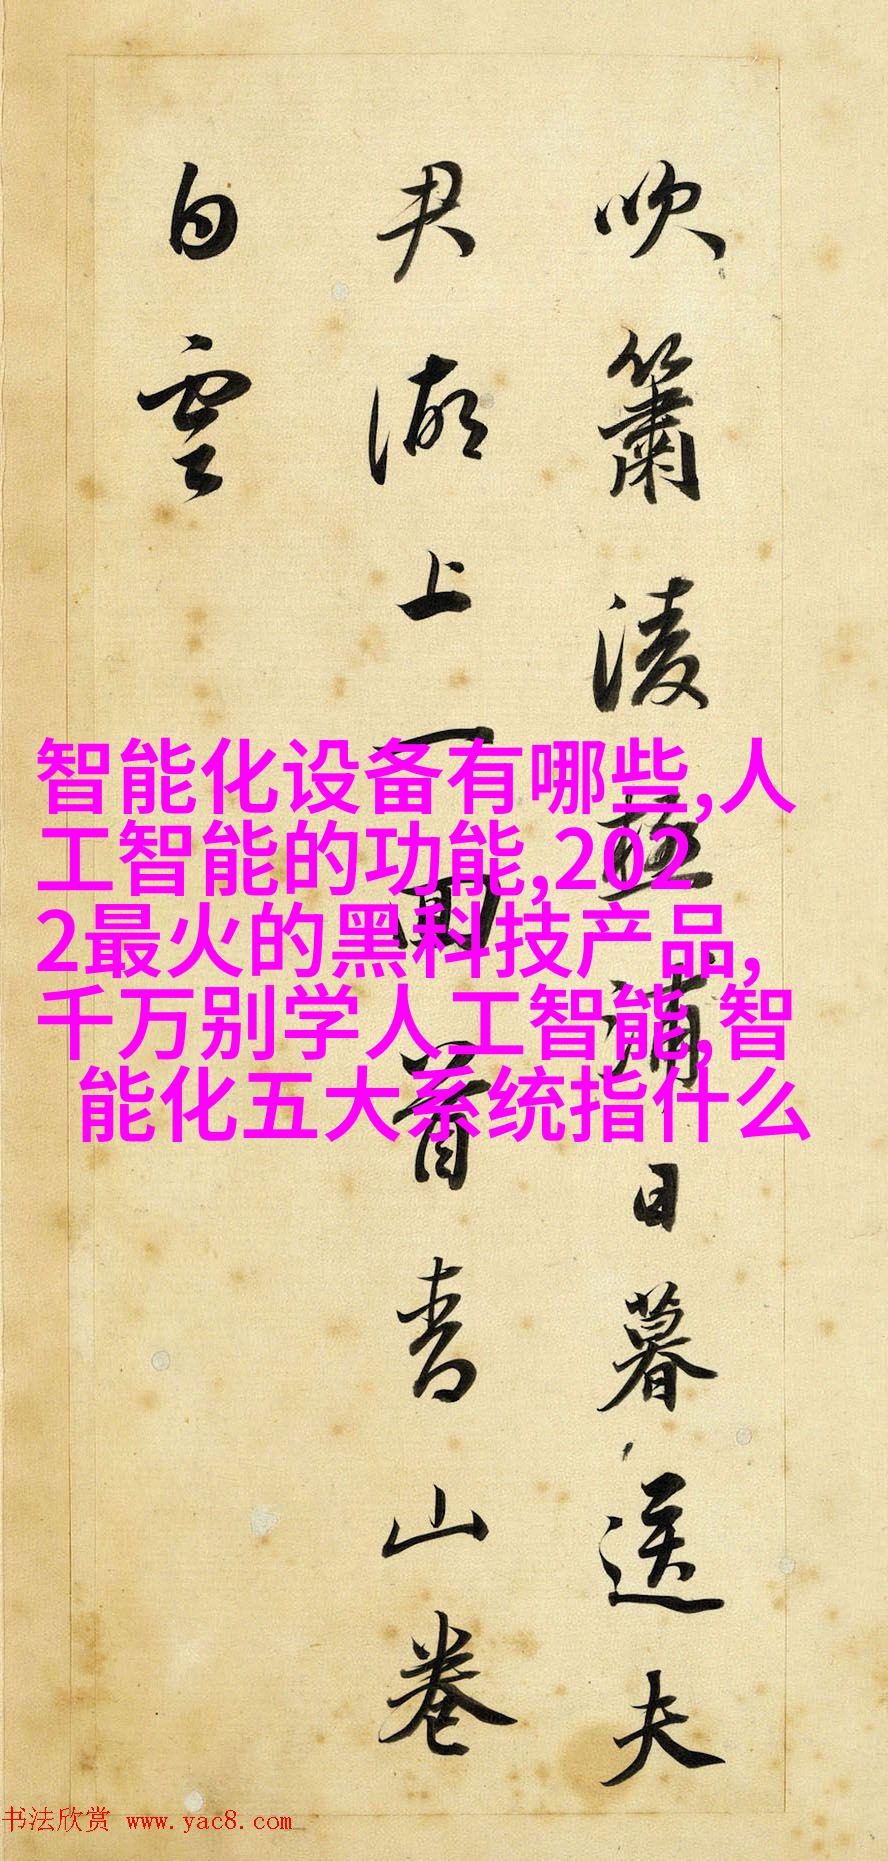 吹簫凌極浦日暮送夫
君湖上一回首青山卷
白雲
智能化设备有哪些,人
工智能的功能,202
2最火的黑科技产品,
千万别学人工智能,智
能化五大系统指什么
书法欣赏 www.yac8.com